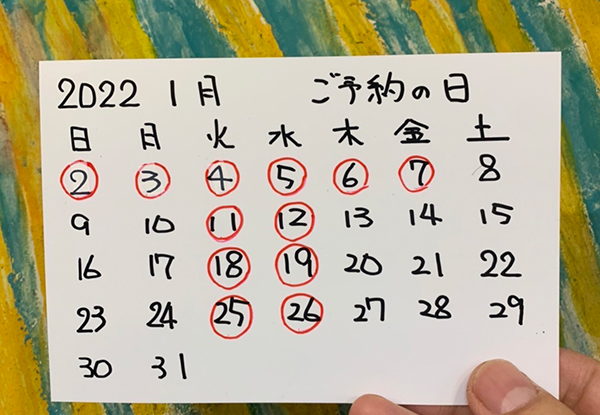 2022 1月 ご予約の日
日 月 火 水 木 金 土
2 3 4 5 6 7 8
9 10 11 12 13 14 15
16 17 18 19 20 21 22
23 24 25 26 27 28 29
30 31